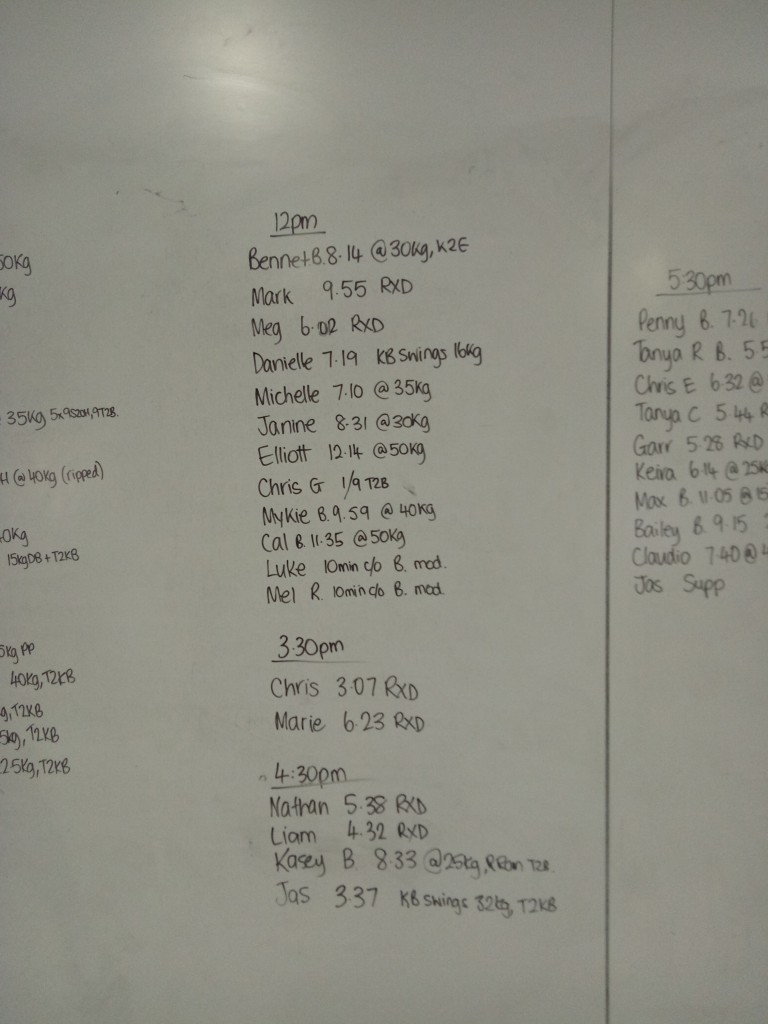 50kg
kg
35kg 5x9S2OH, 9T2B.
H @ 40kg (ripped)
40kg
15kgDB + T2KB
5kg PP
40kg, T2KB
g, T2KB
5kg, T2KB
25kg, T2KB
12pm
Bennet B. 8.14 @ 30kg, K2E
Mark 9.55 RXD
Meg 6.02 RXD
Danielle 7.19 KB Swings 16kg
Michelle 7.10 @ 35kg
Janine 8.31 @ 30kg
Elliott 12.14 @ 50kg
Chris G 1/9 T2B
Mykie B. 9.59 @ 40kg
Cal B. 11.35 @ 50kg
Luke 10min c/o B. mod.
Mel R. 10min c/o B. mod.
3.30pm
Chris 3.07 RXD
Marie 6.23 RXD
4:30pm
Nathan 5.38 RXD
Liam 4.32 RXD
Kasey B 8.33 @ 25kg, T2B.
Jas 3.37 KB Swings 32kg, T2KB
5:30pm
Penny B. 7.21
Tanya R B. 5.5
Chris E 6.32 @
Tanya C 5.44 R
Garr 5.28 RXD
Keira 6.14 @ 25k
Max B. 11.05 @ 15
Bailey B. 9.15
Claudio 7.40 @ 4
Jas Supp